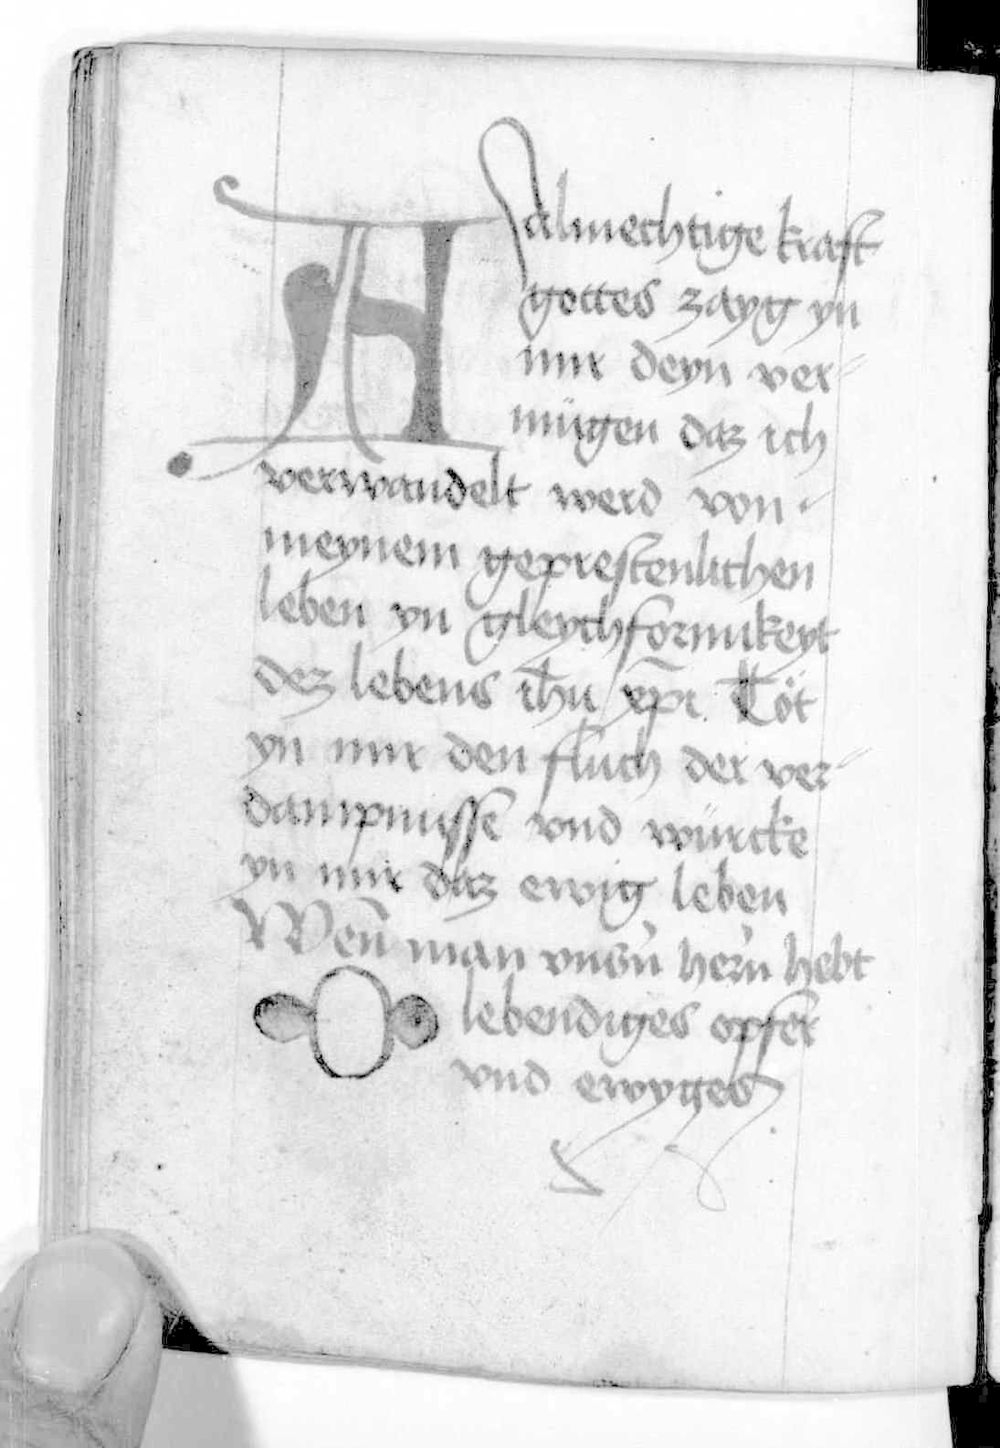 A almechtige kraft
gottes zayg yn
mir deyn ver-
mügen daz ich
verwandelt werd von
meynem geprestenlichen
leben yn gleychformikeyt
dez lebens ihu xpi. Töt
yn mir den fluch der ver-
dampnisse vnd würcke
yn mir daz ewig leben
Wen̄ man vnsn̄ hern̄ hebt
O lebendiges opfer
vnd ewyges